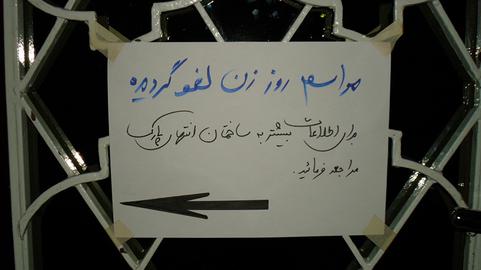 مراسم روز زن لغو گردیده
برای اطلاعات بیشتر به ساختمان انتهای پارک
مراجعه فرمائید.